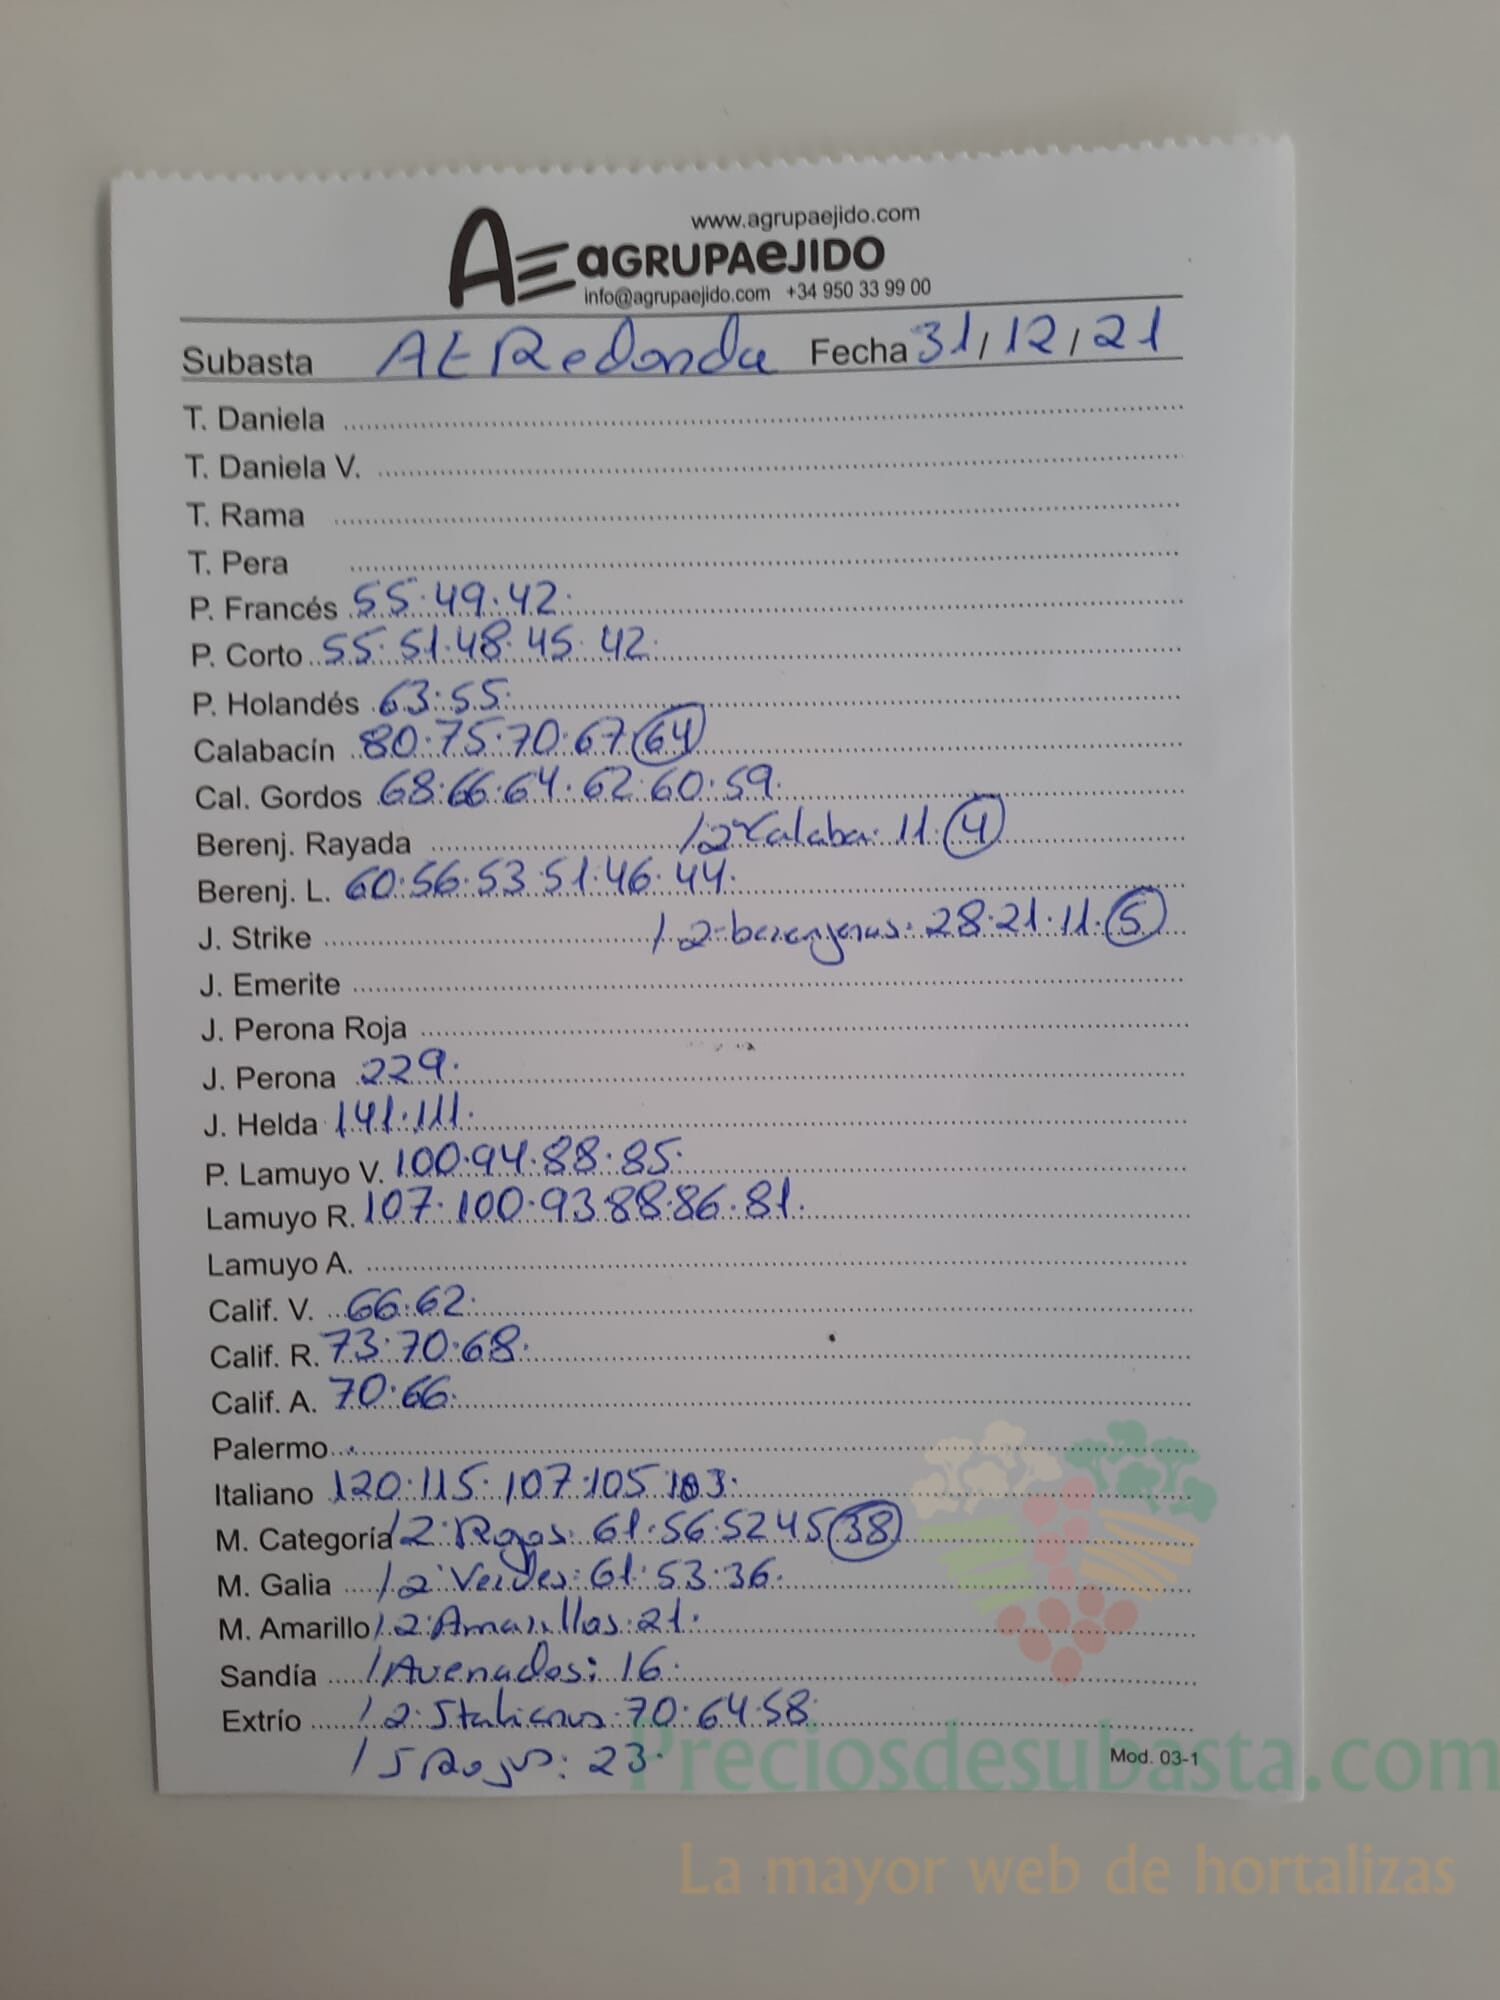 www.agrupaejido.com
AE aGRUPAeJIDO
info@agrupaejido.com +34 950 33 99 00
Subasta AE Redonda Fecha 31/12/21
T. Daniela
T. Daniela V.
T. Rama
T. Pera
P. Francés 55·49·42·
P. Corto 55·51·48·45·42·
P. Holandés 63·55·
Calabacín 80·75·70·67 64
Cal. Gordos 68·66·64·62·60·59·
Berenj. Rayada /2ª Calaba: 11· 4
Berenj. L. 60·56·53·51·46·44·
J. Strike /2·berenjenas: 28·21·11· 5
J. Emerite
J. Perona Roja
J. Perona 229·
J. Helda 141·111·
P. Lamuyo V. 100·94·88·85·
Lamuyo R. 107·100·93·88·86·81·
Lamuyo A.
Calif. V. 66·62·
Calif. R. 73·70·68·
Calif. A. 70·66·
Palermo
Italiano 120·115·107·105 103·
M. Categoría /2·Rojos: 61·56·52 45 38
M. Galia /2·Verdes: 61·53·36·
M. Amarillo /2·Amarillos: 21·
Sandía /Avenados: 16·
Extrío /2·Italianos: 70·64·58·
/5 Rojos: 23·
Mod. 03-1
Preciosdesubasta.com
La mayor web de hortalizas